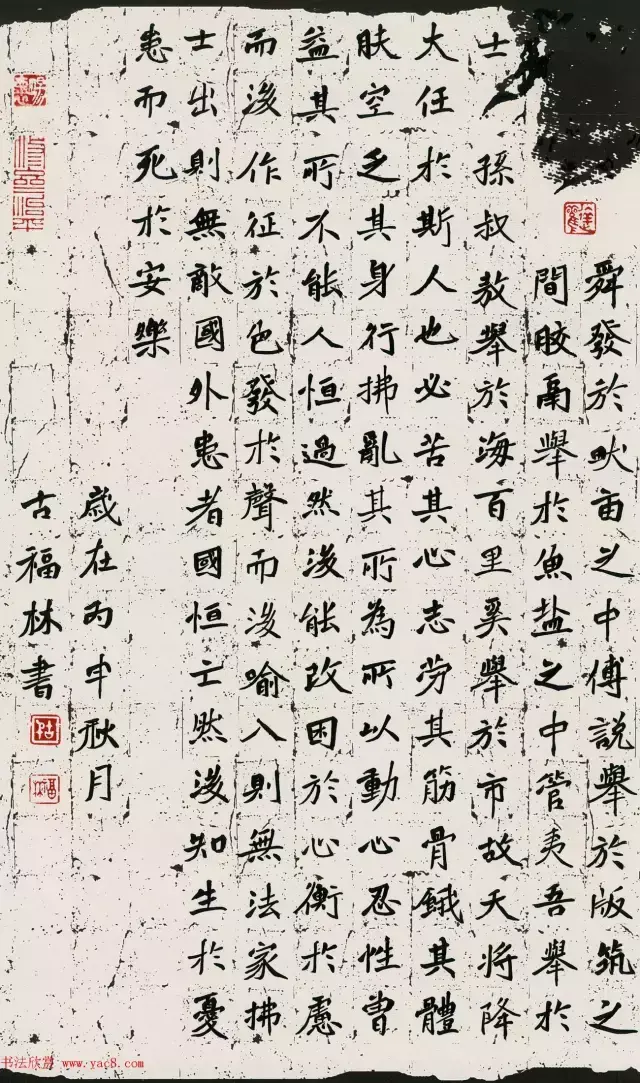 舜發於畎亩之中傅説舉於版筑之
間膠鬲舉於魚盐之中管夷吾舉於
士孫叔敖舉於海百里奚舉於市故天將降
大任於斯人也必苦其心志劳其筋骨餓其體
肤空乏其身行拂亂其所為所以動心忍性曾
益其所不能人恒過然後能改困於心衡於慮
而後作征於色發於聲而後喻入則無法家拂
士出則無敵國外患者國恒亡然後知生於憂
患而死於安樂
歲在丙申秋月
古福林書
书法欣赏 www.yac8.com